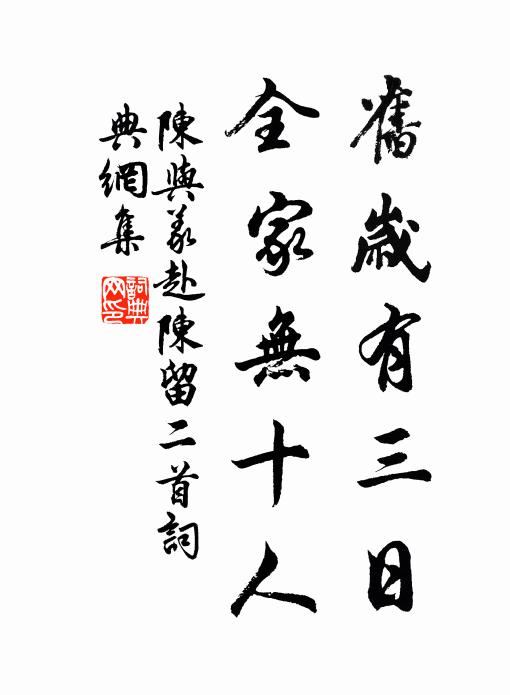 舊歲有三日
全家無十人
陳與義赴陳留二首詞
典網集
詞典網印